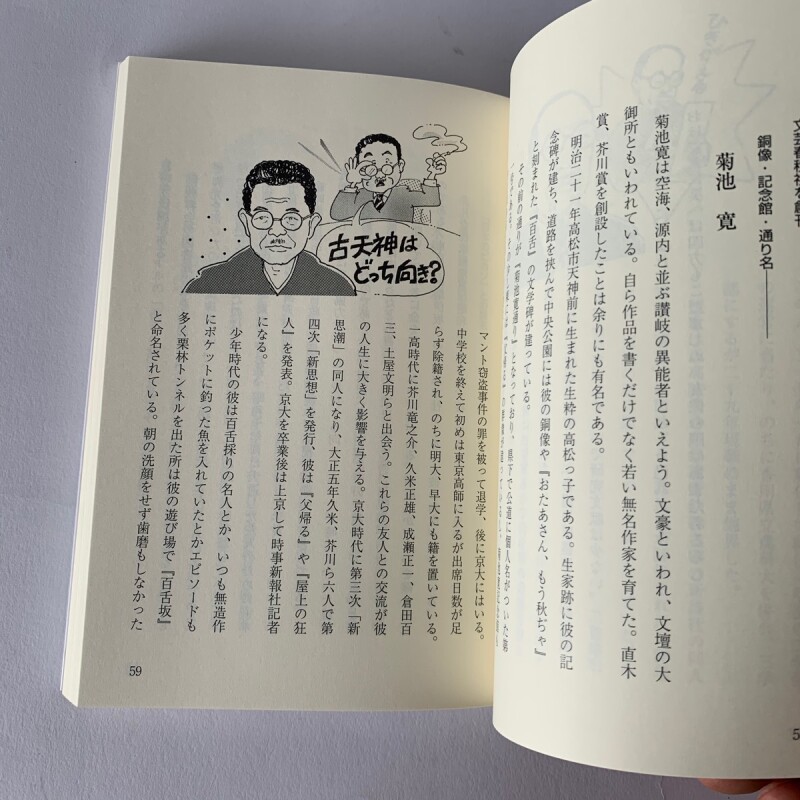 銅像・記念館・通り名
菊池 寛
菊池寛は空海、源内と並ぶ讃岐の異能者といえよう。文豪といわれ、文壇の大
御所ともいわれている。自ら作品を書くだけでなく若い無名作家を育てた。直木
賞、芥川賞を創設したことは余りにも有名である。
明治二十一年高松市天神前に生まれた生粋の高松っ子である。生家跡に彼の記
念碑が建ち、道路を挟んで中央公園には彼の銅像や『おたあさん、もう秋ぢゃ』
と刻まれた『百舌』の文学碑が建っている。
その前の通りが『菊池寛通り』となっており、県下で公道に個人名がついた第
古天神は
どっち向き?
マント窃盗事件の罪を被って退学、後に京大にはいる。
中学校を終えて初めは東京高師に入るが出席日数が足
らず除籍され、のちに明大、早大にも籍を置いている。
一高時代に芥川竜之介、久米正雄、成瀬正一、倉田百
三、土屋文明らと出会う。これらの友人との交流が彼
の人生に大きく影響を与える。京大時代に第三次「新
思潮」の同人になり、大正五年久米、芥川ら六人で第
四次「新思想」を発行、彼は『父帰る』や『屋上の狂
人』を発表。京大を卒業後は上京して時事新報社記者
になる。
少年時代の彼は百舌採りの名人とか、いつも無造作
にポケットに釣った魚を入れていたとかエピソードも
多く栗林トンネルを出た所は彼の遊び場で『百舌坂』
と命名されている。朝の洗顔をせず歯磨もしなかった
59